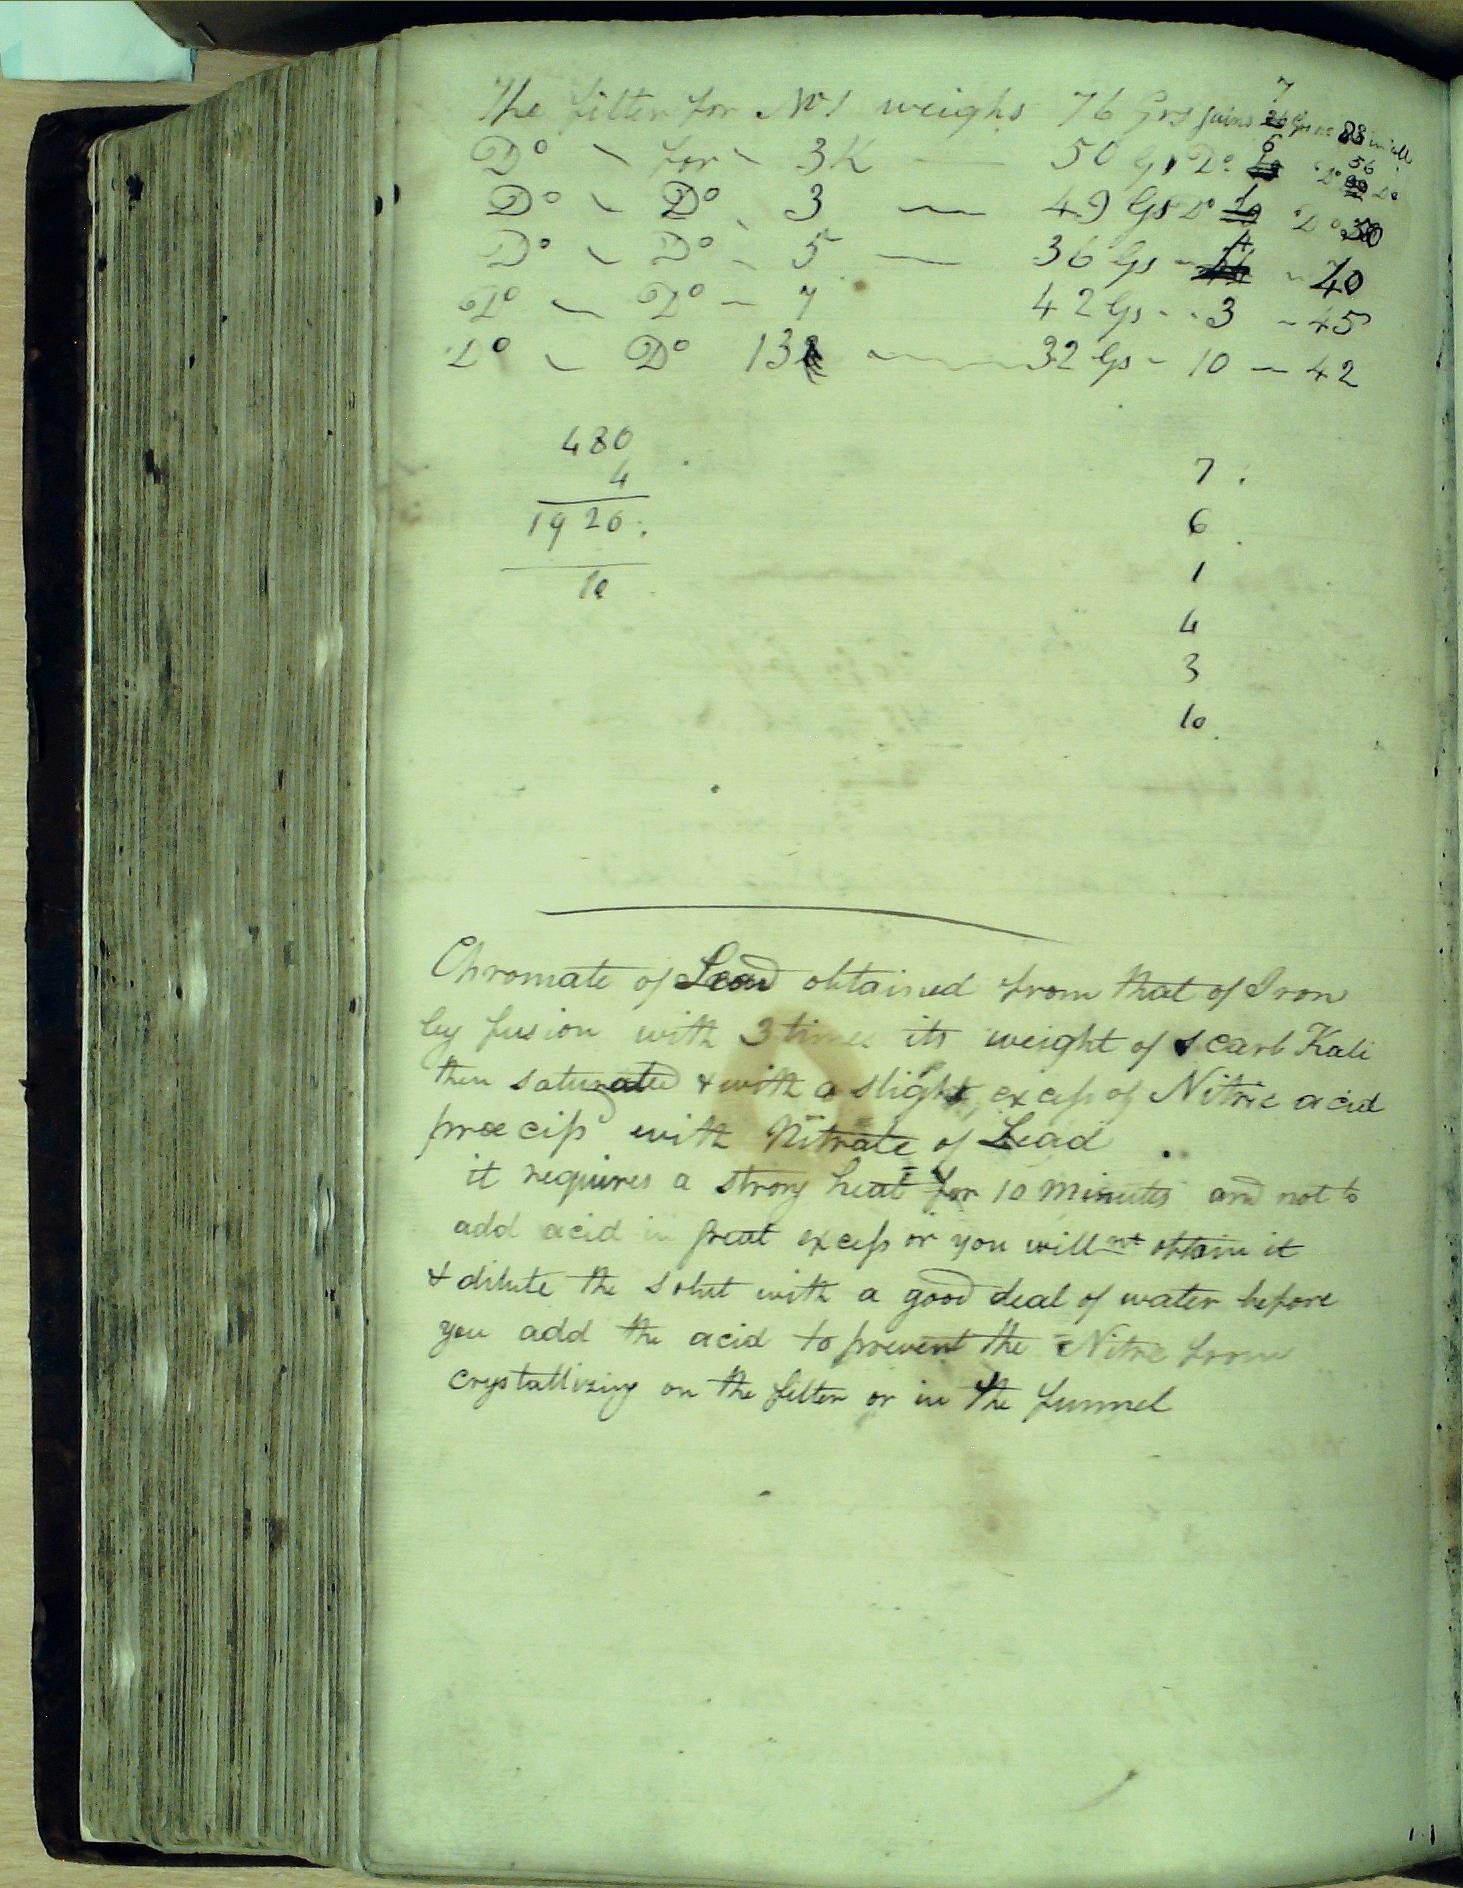 The filter for No 1 weighs 76 Grs gains 7 88 in all
Do for 3K 50 Gs Do 6 Do 56 Do
Do Do 3 — 49 Gs Do 1 Do 50
Do Do 5 — 36 Gs - 4 - 40
Do Do - 7 42 Gs - 3 - 45
Do Do 13 — 32 Gs - 10 - 42
480
4
1920
10
7
6
1
4
3
10
Chromate of Lead obtained from that of Iron
by fusion with 3 times its weight of s carb Kali
then saturated & with a slight excess of Nitric acid
præcip with Nitrate of Lead
it requires a strong heat for 10 minutes and not to
add acid in great excess or you will not obtain it
& dilute the solut with a good deal of water before
you add the acid to prevent the Nitre from
crystallizing on the filter or in the funnel